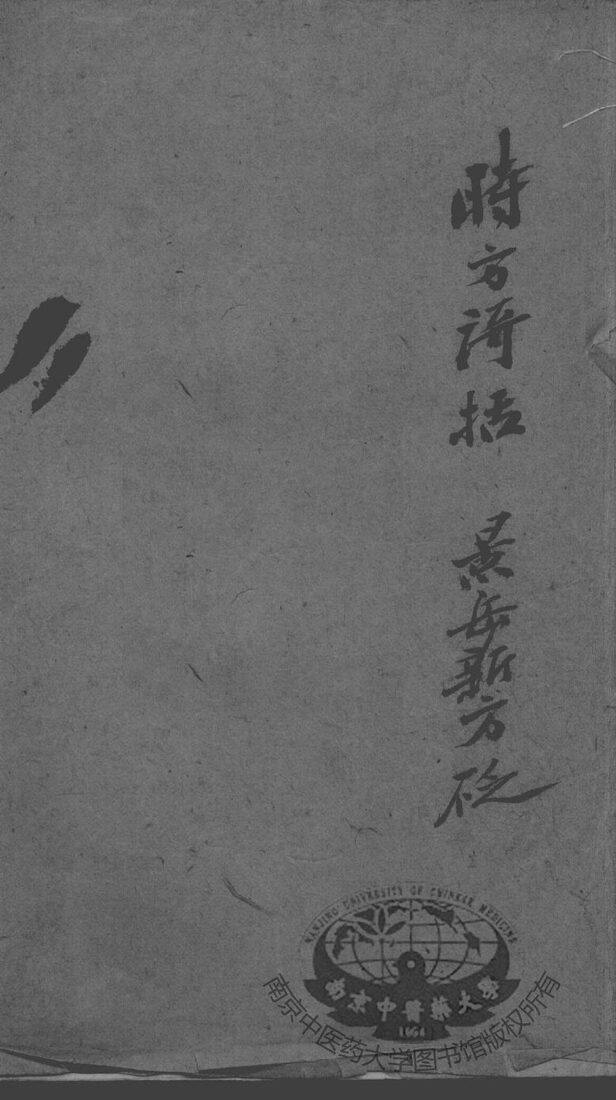 時方諳括 景岳新方砭
NANJING UNIVERSITY OF CHINESE MEDICINE
南京中醫藥大學
1954
南京中医药大学图书馆版权所有